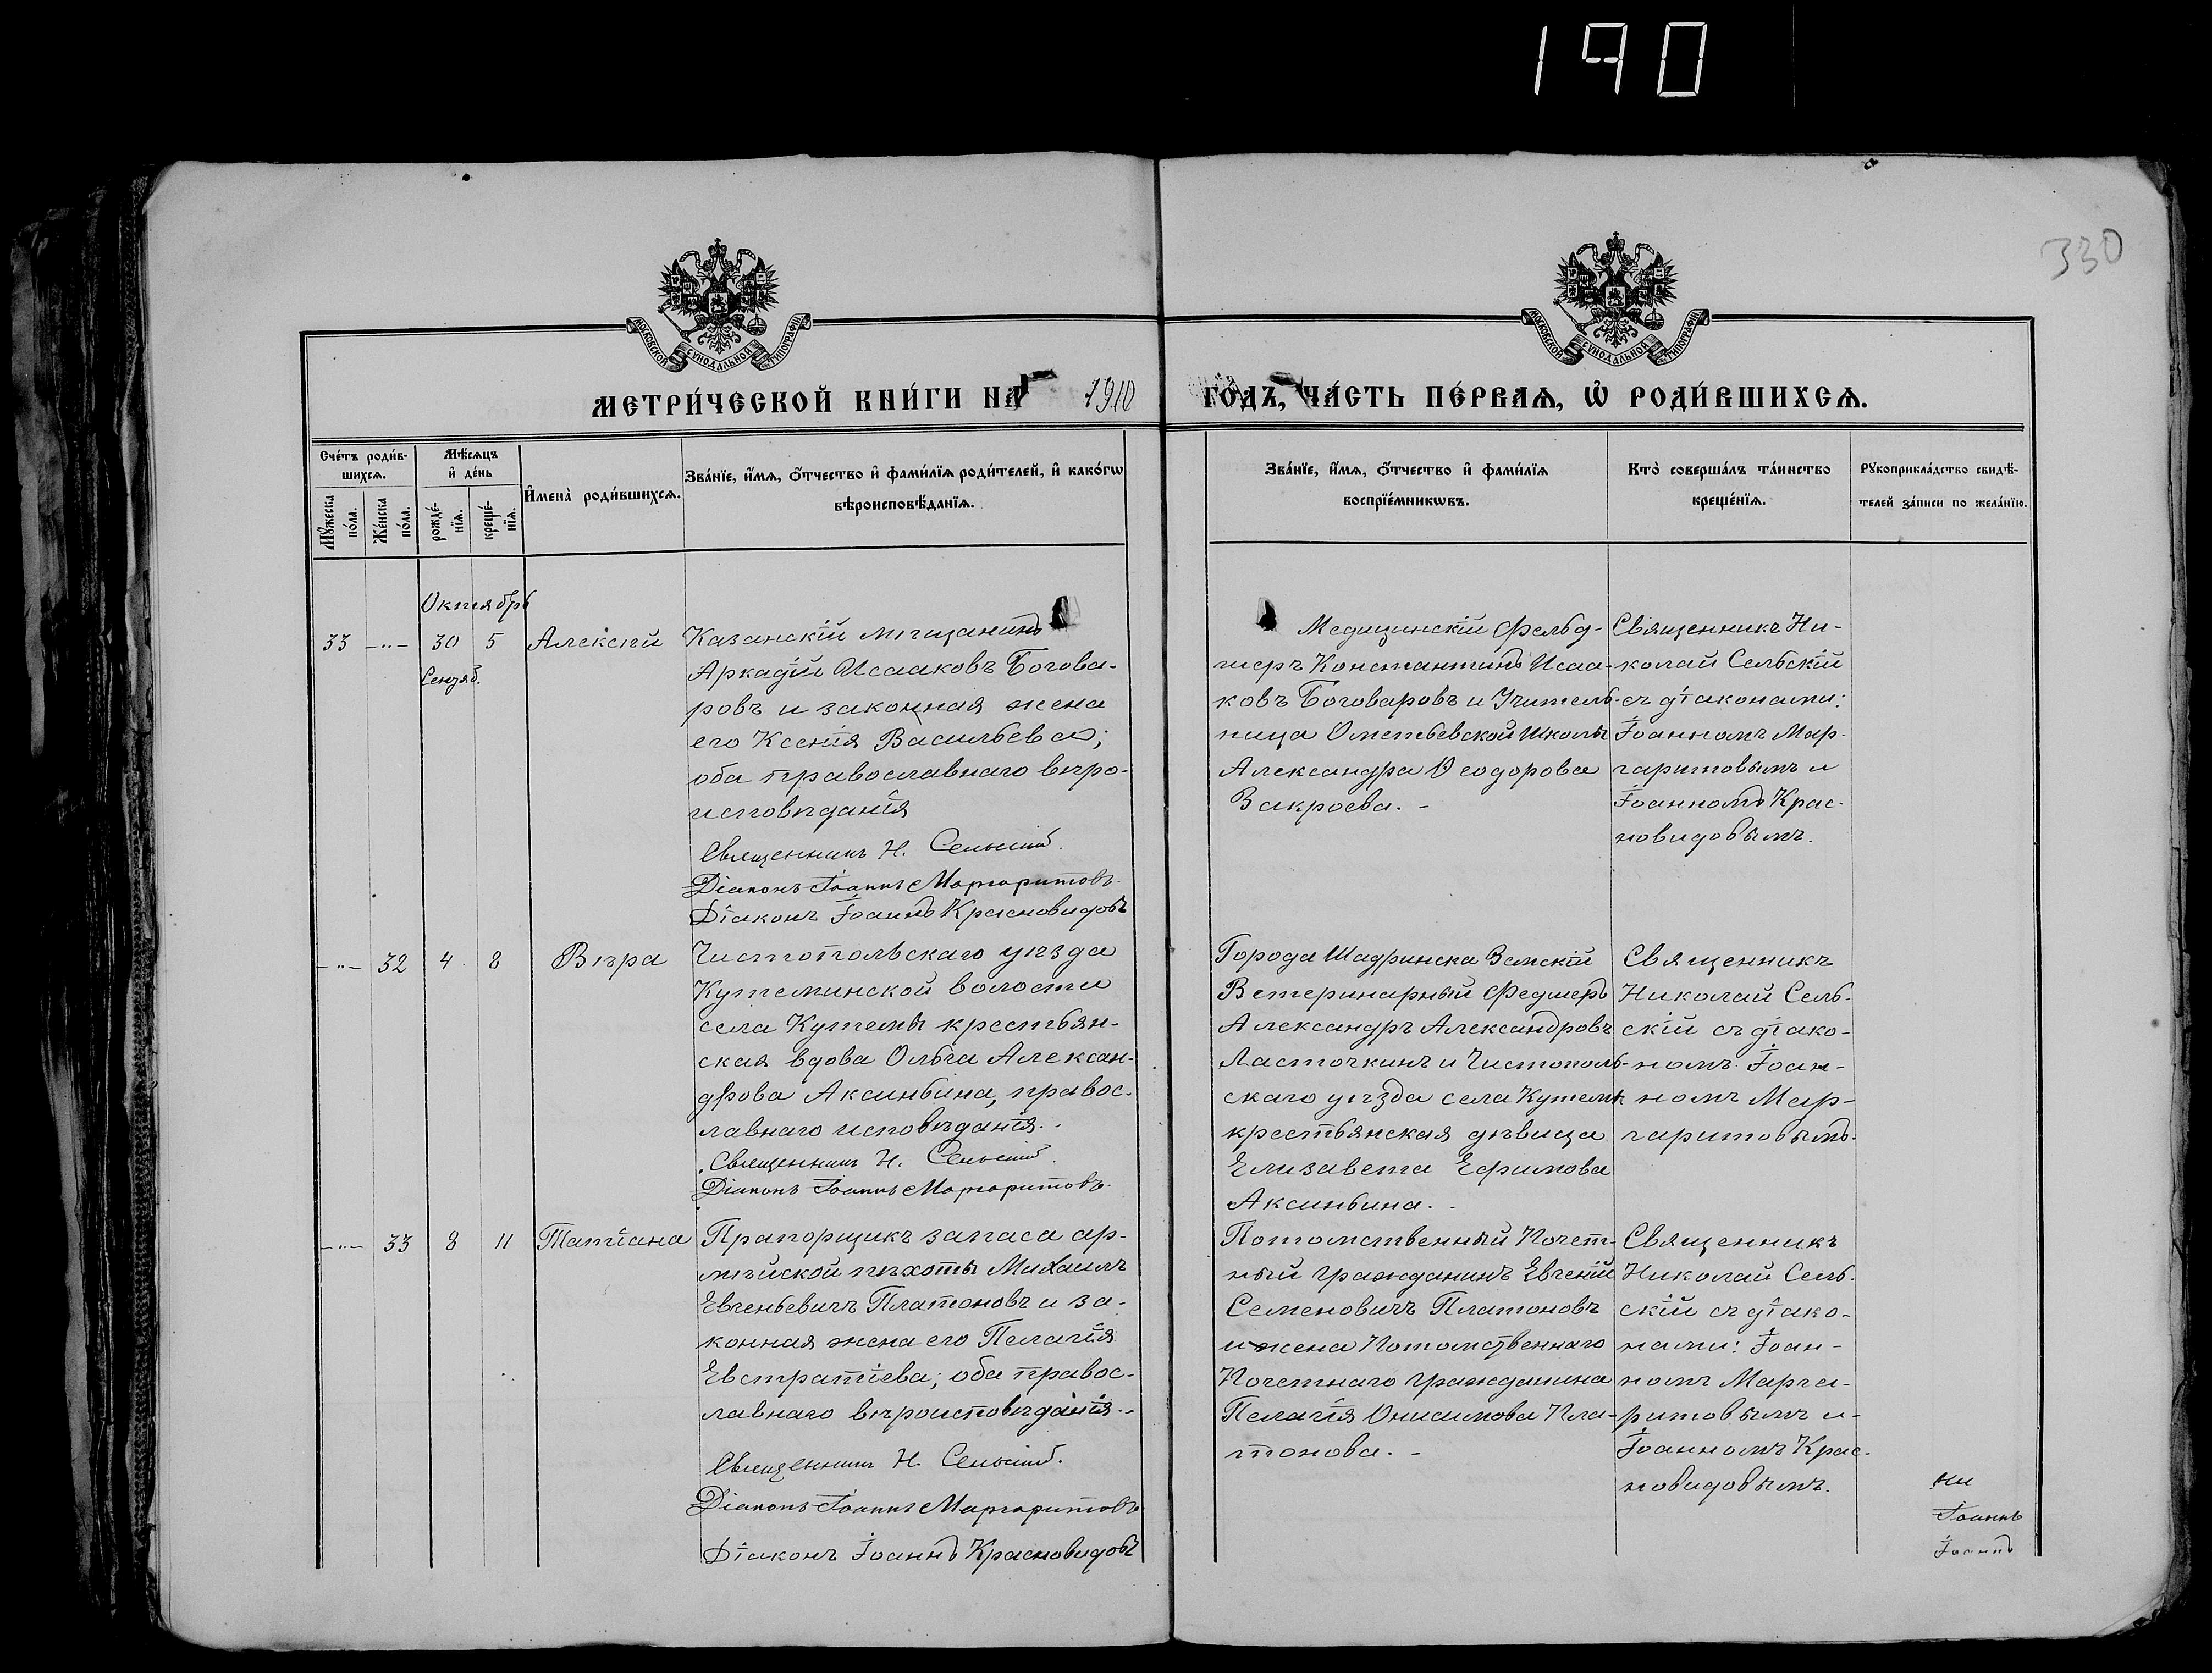 190
330
МОСКОВСКОЙ СУНОДАЛЬНОЙ ТИПОГРАФІИ
МОСКОВСКОЙ СУНОДАЛЬНОЙ ТИПОГРАФІИ
МЕТРИ́ЧЕСКОЙ КНИ́ГИ НА 1910 ГОДЪ, ЧА́СТЬ ПЕ́РВАѦ, Ѡ҆ РОДИ́ВШИХСѦ.
Сче́тъ роди́в-
шихсѧ.
Мꙋ́жеска
по́ла.
Же́нска
по́ла.
Мѣ́сѧцъ
и҆ де́нь
рожде́-
нїѧ.
креще́-
нїѧ.
И҆мена̀ роди́вшихсѧ.
Зва́нїе, и҆́мѧ, ѻ҆́тчество и҆ фами́лїѧ роди́телей, и҆ како́гѡ
вѣроисповѣ́данїѧ.
Зва́нїе, и҆́мѧ, ѻ҆́тчество и҆ фами́лїѧ
воспрїе́мникѡвъ.
Кто̀ соверша́лъ та́инство
креще́нїѧ.
Рꙋкоприкла́дство свидѣ́-
телей за́писи по жела́нїю.
Октябрь
33 -"- 30 5 Алексѣй
Сентяб.
Казанскій мѣщанинъ
Аркадій Исааковъ Богова-
ровъ и законная жена
его Ксенія Васильева;
оба православнаго вѣро-
исповѣданія
Священникъ Н. Сельскій.
Діаконъ Іоаннъ Маргаритовъ.
Діаконъ Іоаннъ Красновидовъ
Медицинскій фельд-
шеръ Константинъ Исаа-
ковъ Боговаровъ и Учитель-
ница Ометьевской школы
Александра Ѳеодорова
Вакроева. -
Священникъ Ни-
колай Сельскій
съ діаконами:
Іоанномъ Мар-
гаритовымъ и
Іоанномъ Крас-
новидовымъ.
-"- 32 4 8 Вѣра
Чистопольскаго уѣзда
Кутеминской волости
села Кутемы крестьян-
ская вдова Ольга Алексан-
дрова Аксиньина, правос-
лавнаго исповѣданія.
Священникъ Н. Сельскій.
Діаконъ Іоаннъ Маргаритовъ.
Города Шадринска Земскій
Ветеринарный Федшеръ
Александръ Александровъ
Ласточкинъ и Чистополь-
скаго уѣзда села Кутемы
крестьянская дѣвица
Елизавета Ефимова
Аксиньина.
Священникъ
Николай Сель-
скій съ діако-
номъ Іоан-
номъ Мар-
гаритовымъ.
-"- 33 8 11 Татіана
Прапорщикъ запаса ар-
мейской пѣхоты Михаилъ
Евгеньевичъ Платоновъ и за-
конная жена его Пелагія
Евстратіева; оба правос-
лавнаго вѣроисповѣданія.
Священникъ Н. Сельскій.
Діаконъ Іоаннъ Маргаритовъ
Діаконъ Іоаннъ Красновидовъ
Потомственный Почет-
ный гражданинъ Евгеній
Семеновичъ Платоновъ
и жена Потомственнаго
Почетнаго гражданина
Пелагія Онисимова Пла-
тонова. -
Священникъ
Николай Сель-
скій съ діако-
нами: Іоан-
номъ Марга-
ритовымъ и
Іоанномъ Крас-
новидовымъ.
ни
Іоаннъ
Іоаннъ